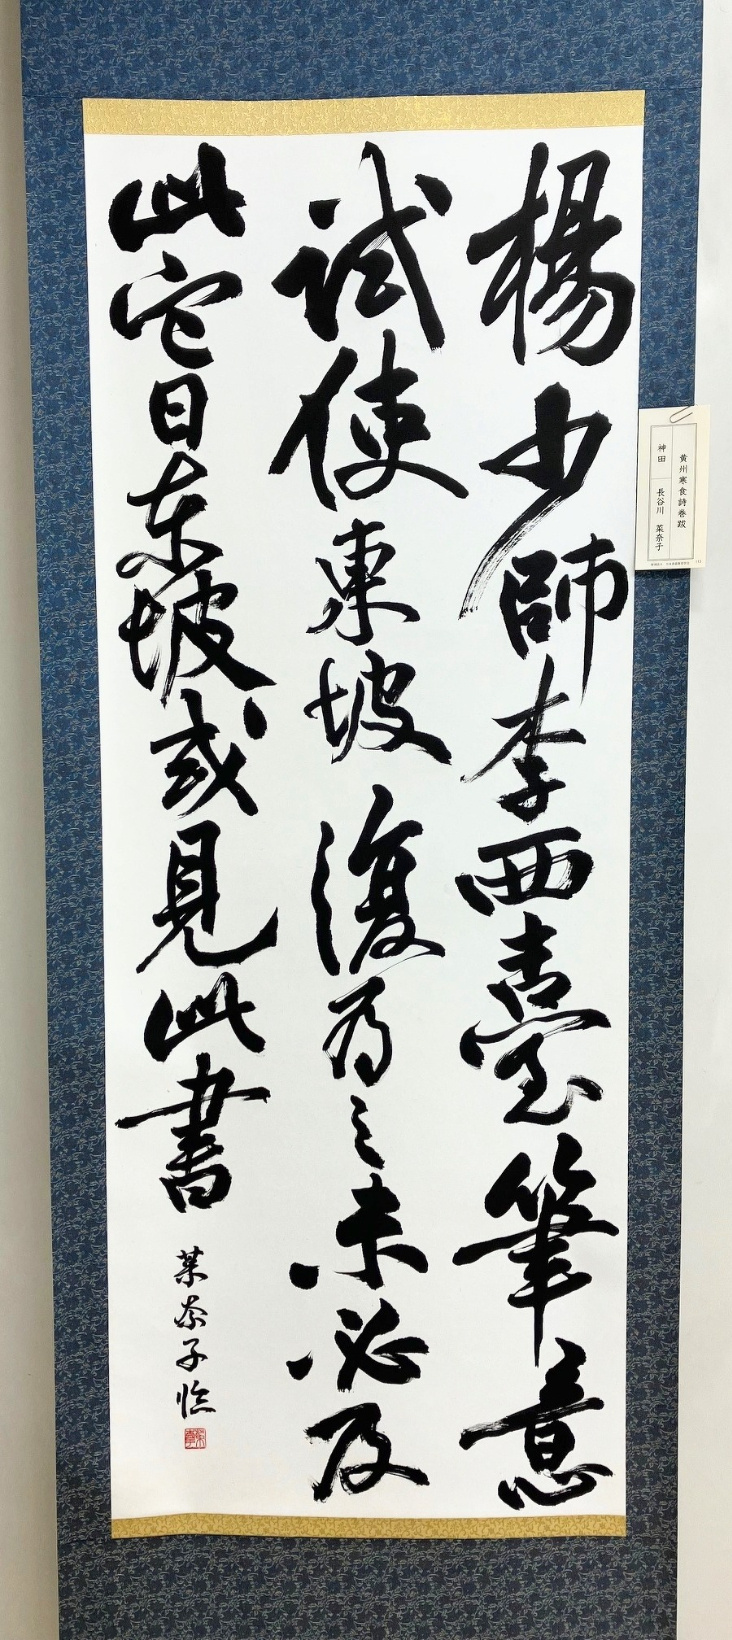 楊少師李西臺筆意
試使東坡復為之未必及
此它日东坡或見此書
菜奈子臨
黄州寒食詩巻跋
神田 長谷川 菜奈子